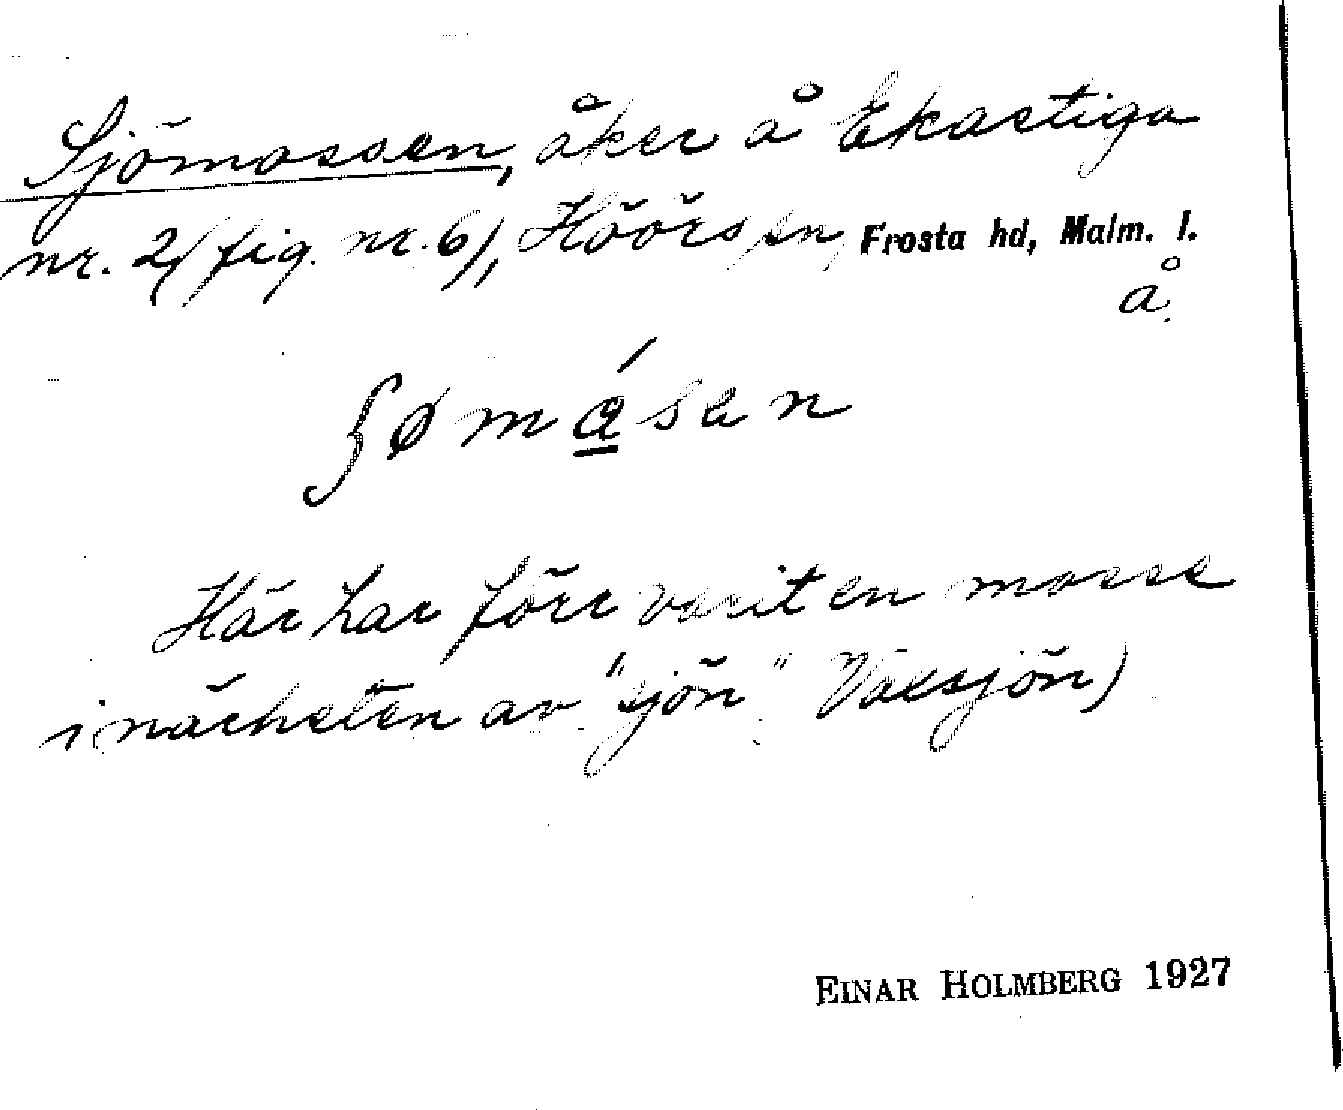 Sjömossen, åker å Ekastiga
nr. 2 (fig. nr. 6), Höörs sn, Frosta hd, Malm. l.
å.
ʃømåsen
Här har förr varit en mosse
i närheten av "sjön" Vaxsjön)
EINAR HOLMBERG 1927